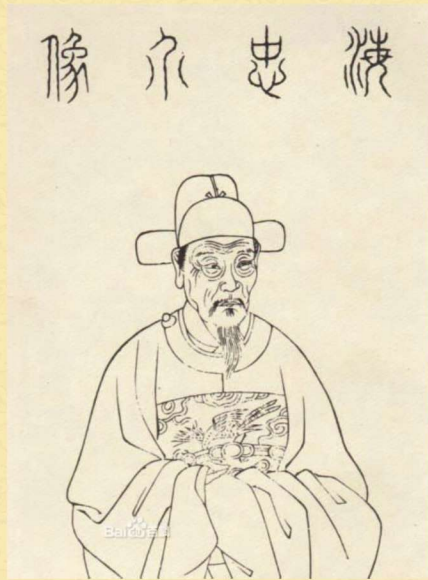 海忠介像
Bai百科